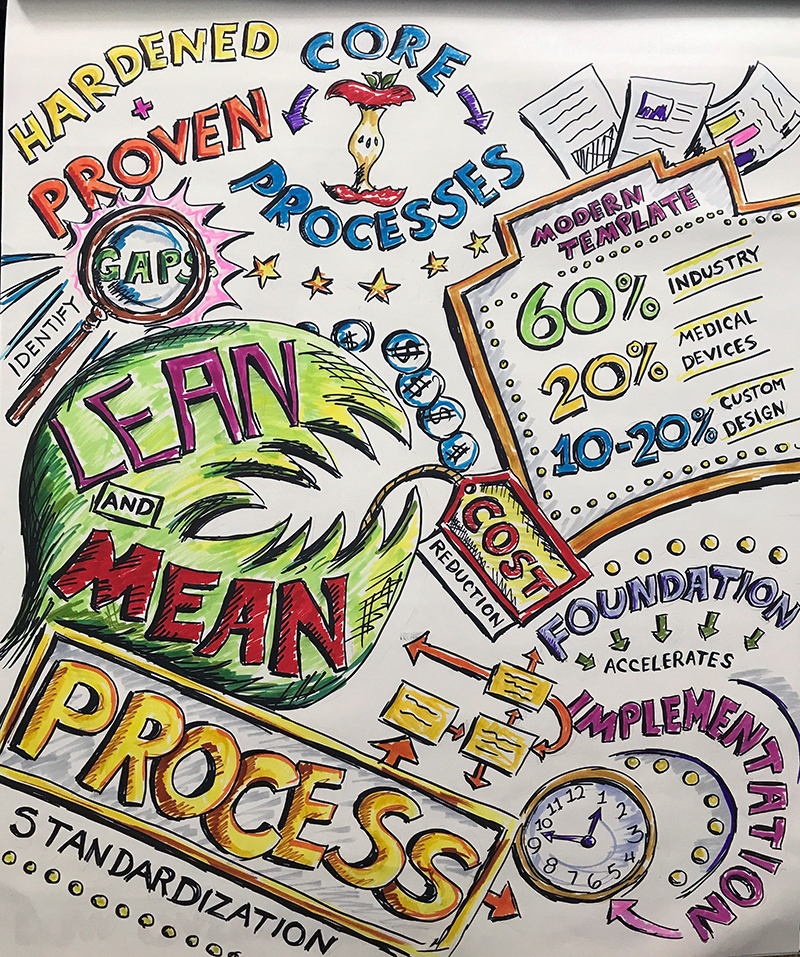 HARDENED
+
PROVEN
CORE
PROCESSES
IDENTIFY
GAPS
MODERN
TEMPLATE
60% INDUSTRY
20% MEDICAL
DEVICES
10-20% CUSTOM
DESIGN
$ $
$
$
$
$
LEAN
AND
MEAN
COST
REDUCTION
FOUNDATION
ACCELERATES
IMPLEMENTATION
PROCESS
STANDARDIZATION
12
1
2
3
4
5
6
7
8
9
10
11